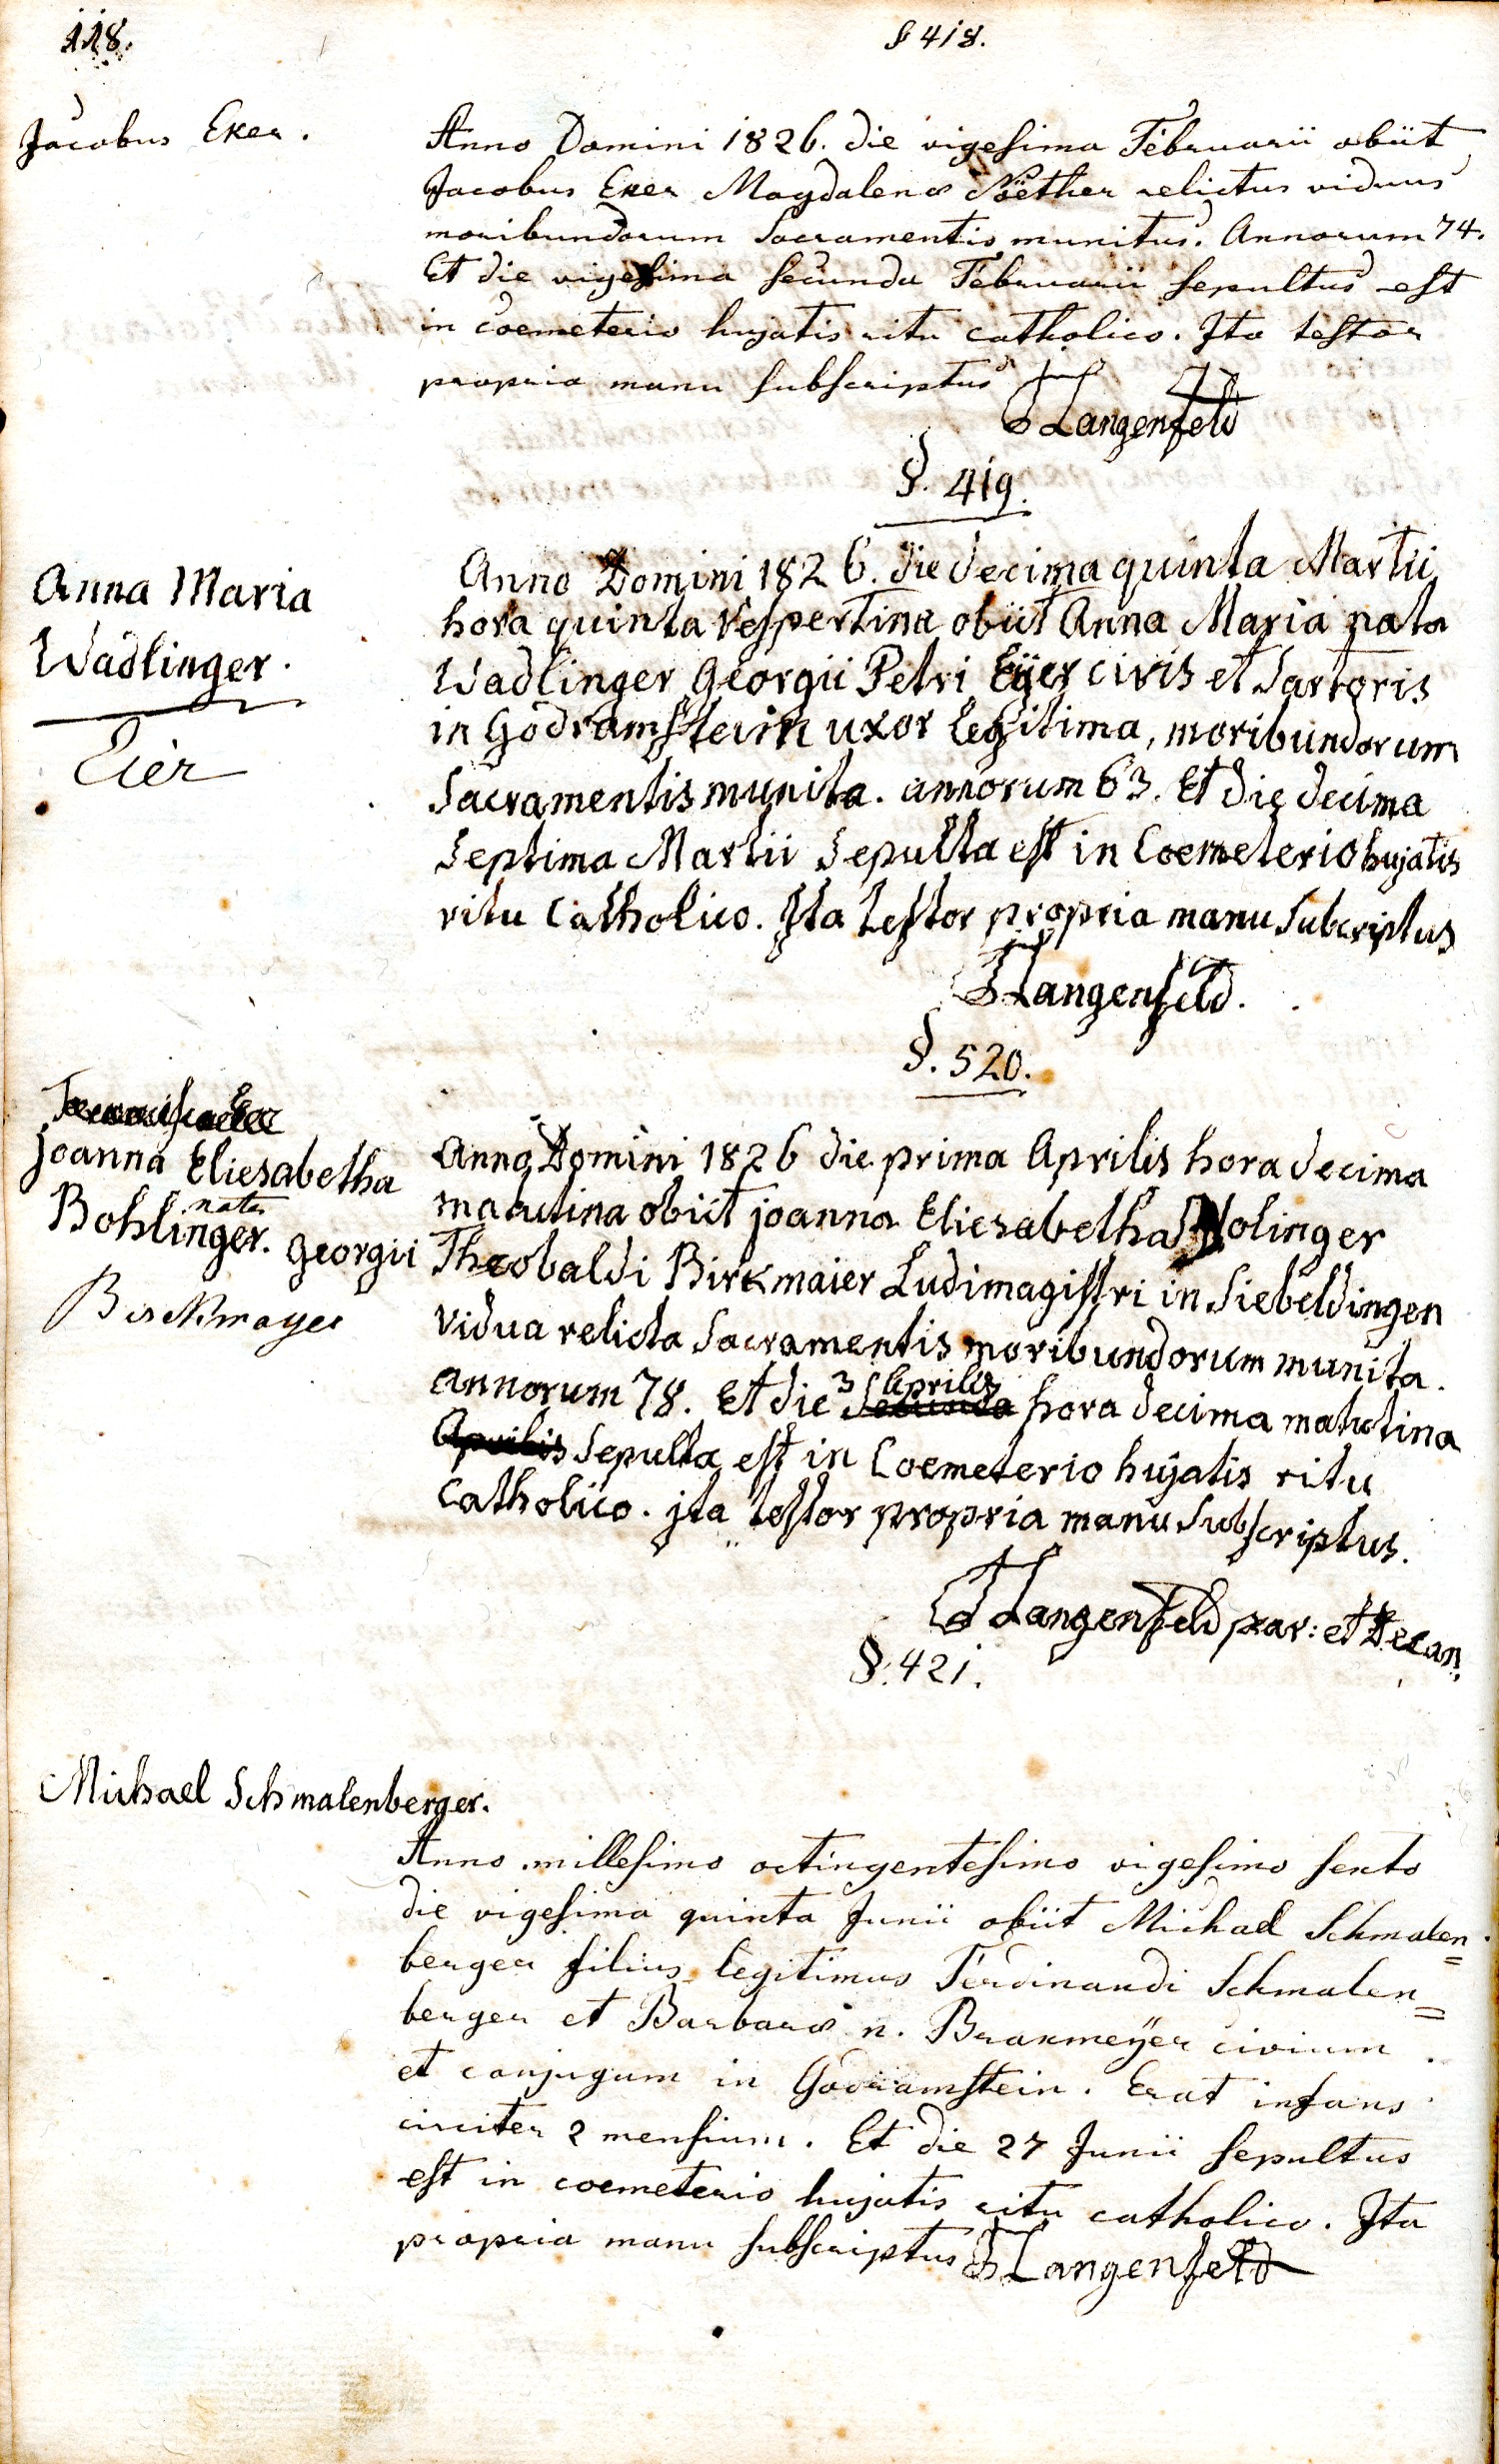 118.
§ 418.
Jacobus Exer.
Anno Domini 1826. die vigesima Februarii obiit
Jacobus Exer Magdalenæ Nöether relictus viduus
moribundorum Sacramentis munitus. Annorum 74.
Et die vigesima secunda Februarii sepultus est
in coemeterio hujatis ritu catholico. Ita testor
propria manu subscriptus
Langenfeld
§. 419.
Anna Maria
Wadlinger.
Eier
Anno Domini 1826. die decima quinta Martii
hora quinta vespertina obiit Anna Maria nata
Wadlinger Georgii Petri Eÿer civis et Sartoris
in Godramstein uxor legitima, moribundorum
Sacramentis munita. annorum 63. Et die decima
Septima Martii Sepulta est in Coemeterio hujatis
ritu Catholico. Ita testor propria manu Subcriptus
Langenfeld.
§. 520.
Joanna Eliesabetha
nata
Bohlinger. Georgii
Birckmayer
Anno Domini 1826 die prima Aprilis hora decima
maautina obiit joanna Eliesabetha Bolinger
Theobaldi Birkmaier Ludimagistri in Siebeldingen
vidua relicta Sacramentis moribundorum munita.
annorum 78. Et die 3 Aprilis Secunda hora decima matutina
Aprilis Sepulta est in Coemeterio hujatis ritu
Catholico. jta testor propria manu Subscriptus.
Langenfeld par: et Decan.
§. 421.
Michael Schmalenberger.
Anno millesimo octingentesimo vigesimo sexto
die vigesima quinta Junii obiit Michael Schmalen=
berger filius legitimus Ferdinandi Schmalen=
berger et Barbaræ n. Brakmeÿer civium
et conjugum in Godramstein. Erat infans
circiter 2 mensium. Et die 27 Junii sepultus
est in coemeterio hujatis ritu catholico. Ita
propria manu subscriptus Langenfeld